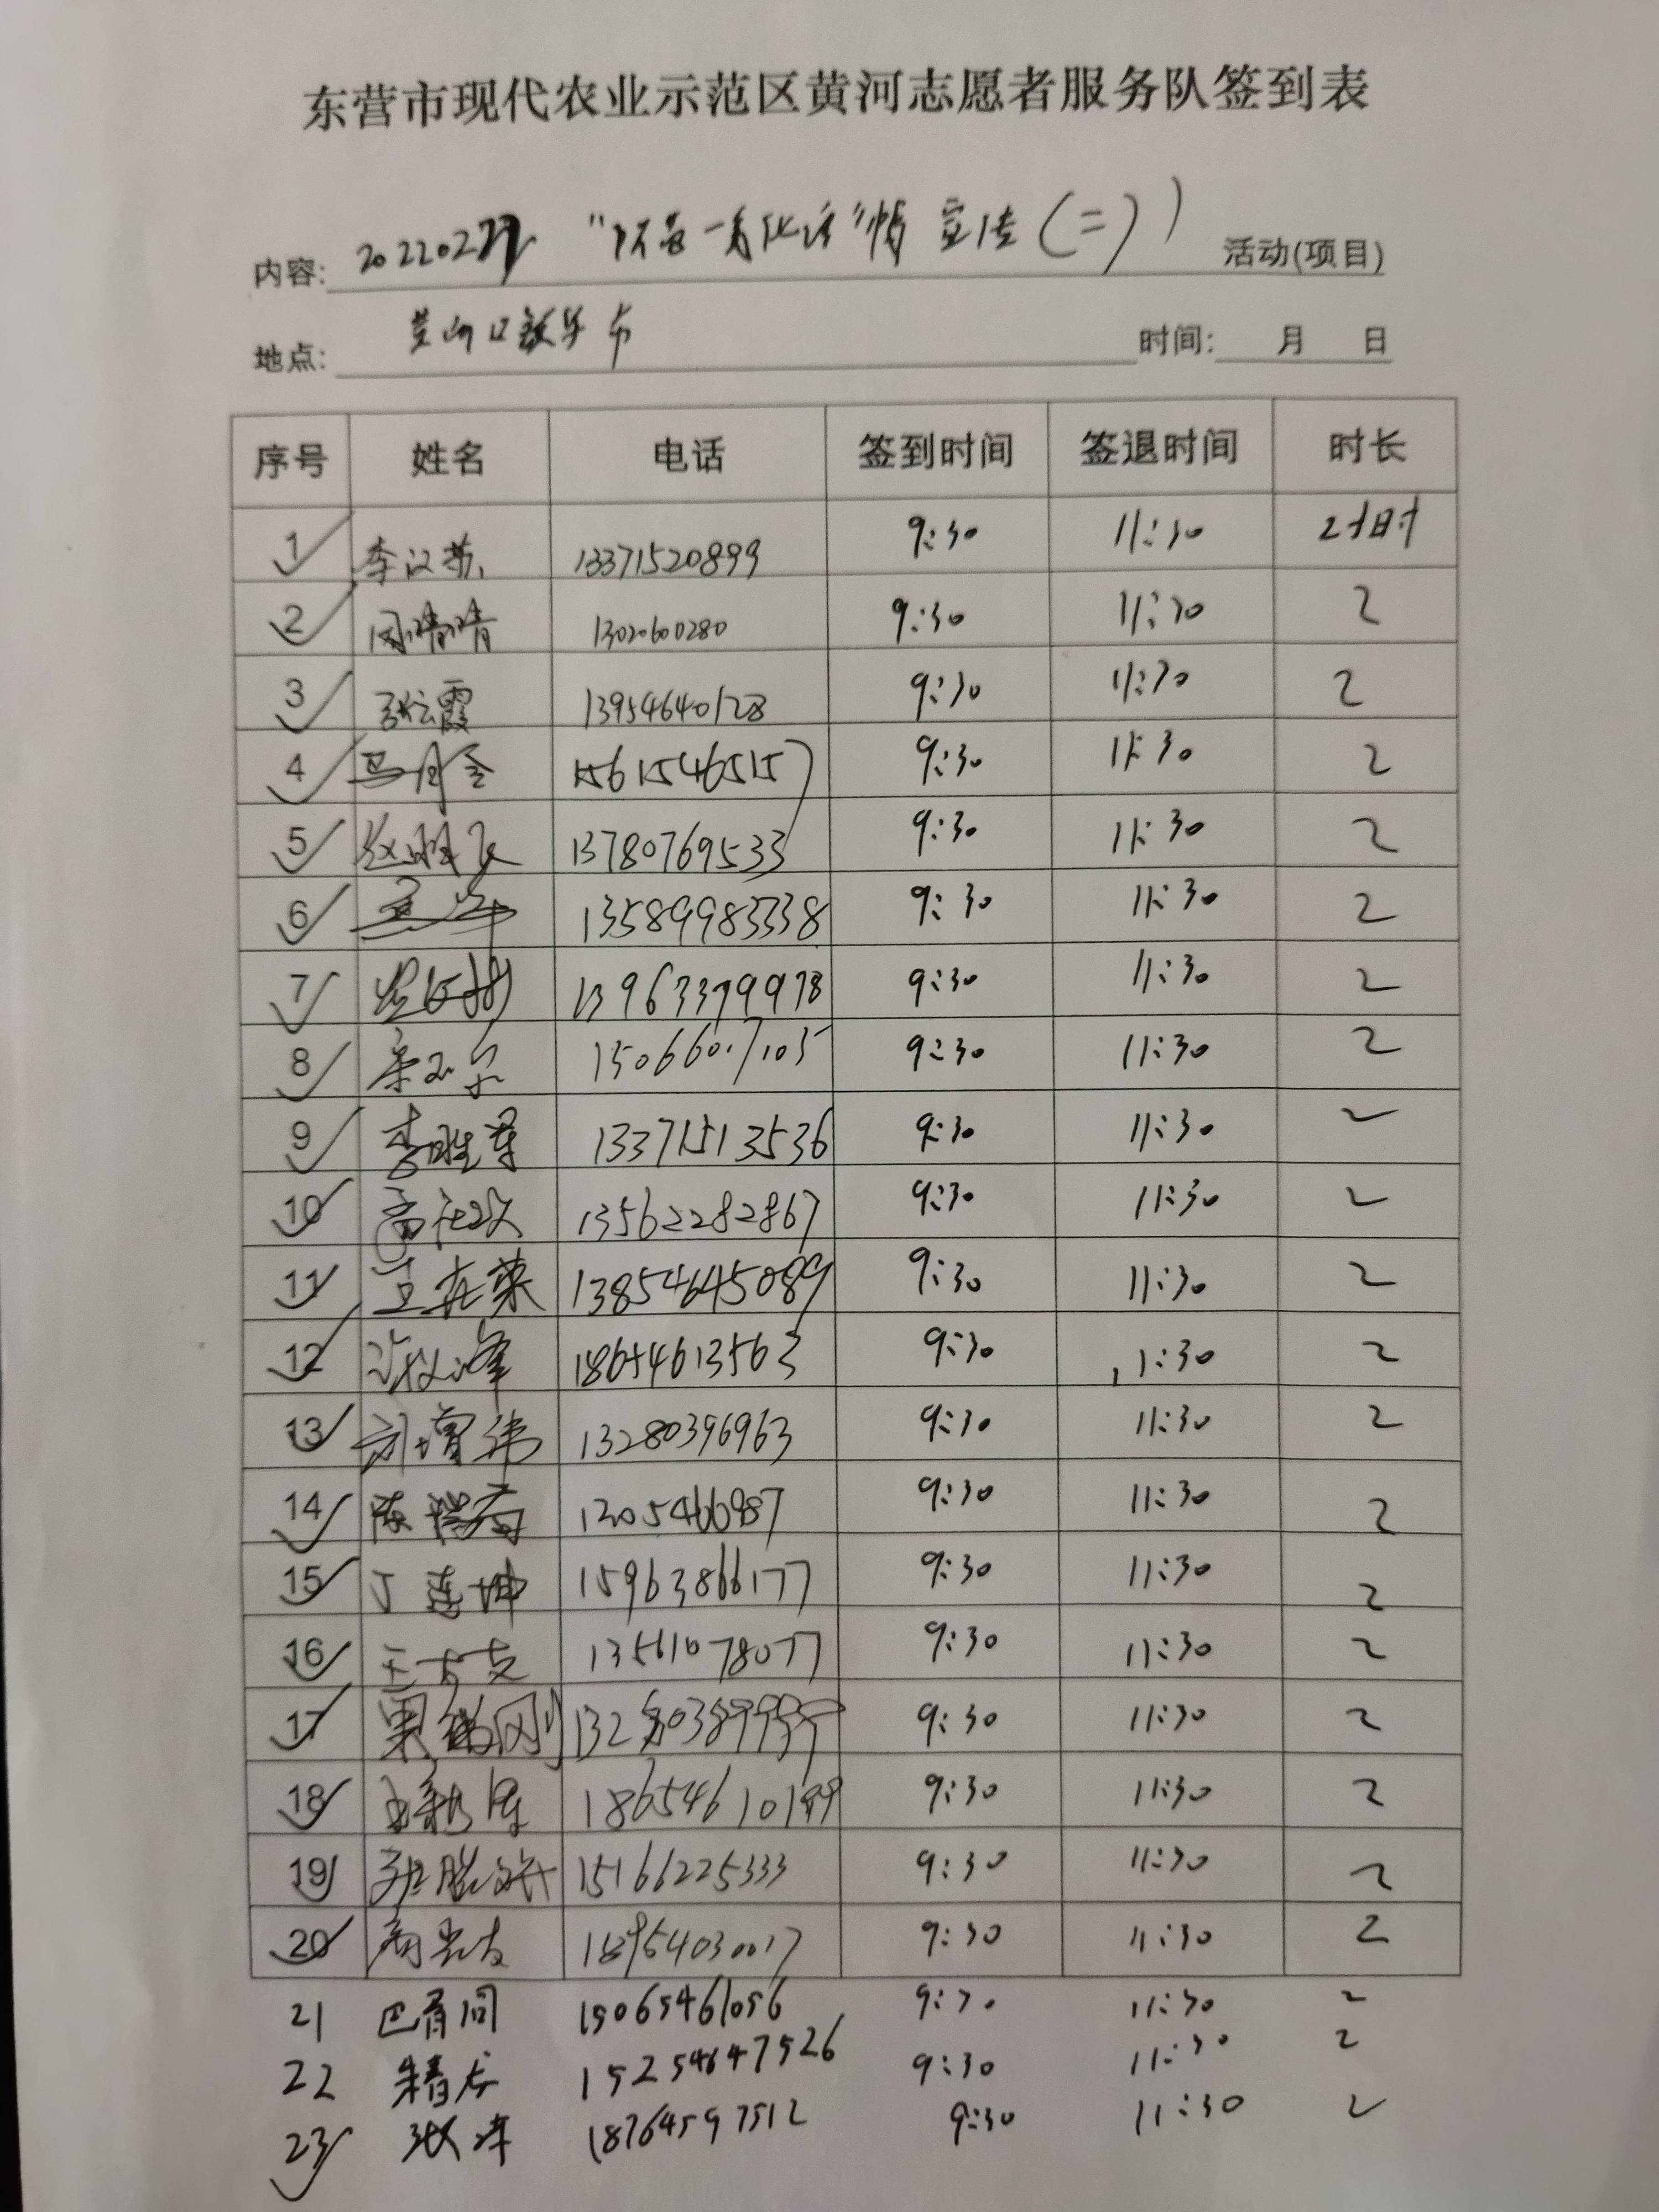 东营市现代农业示范区黄河志愿者服务队签到表
内容: 20220227 宣传(二) 活动(项目)
地点: 黄河口 市 时间: 月 日
序号 姓名 电话 签到时间 签退时间 时长
1 李汉 13371520899 9:30 11:30 2小时
2 周晴晴 13020600280 9:30 11:30 2
3 张云霞 13954640128 9:30 11:30 2
4 15615465157 9:30 11:30 2
5 赵 13780769533 9:30 11:30 2
6 13589983338 9:30 11:30 2
7 13963379978 9:30 11:30 2
8 15066017105 9:30 11:30 2
9 李胜军 13371513536 9:30 11:30 2
10 高 13562282867 9:30 11:30 2
11 王在荣 13854645089 9:30 11:30 2
12 峰 18654613563 9:30 11:30 2
13 刘增伟 13280396963 9:30 11:30 2
14 陈瑞香 1205466987 9:30 11:30 2
15 丁莲坤 15963866177 9:30 11:30 2
16 王 13561078077 9:30 11:30 2
17 刚 9:30 11:30 2
18 9:30 11:30 2
19 张胜 15166225333 9:30 11:30 2
20 18954030017 9:30 11:30 2
21 巴 15065461056 9:30 11:30 2
22 15254647526 9:30 11:30 2
23 张 18764597512 9:30 11:30 2